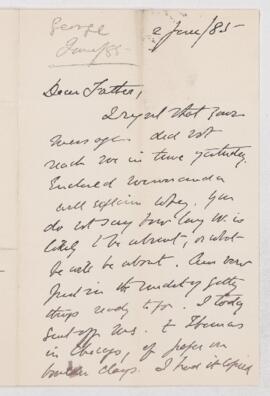 George
June/85
2 June/85
Dear Father,
I regret that your
messages did not
reach me in time yesterday.
Enclosed memoranda
will explain why. You
do not say how long W. is
likely to be absent, or what
he will be about. Am now
just in the midst of getting
things ready to go. I today
sent off Mrs. & Thomas
in Chicago, of paper on
clays. I had it copied